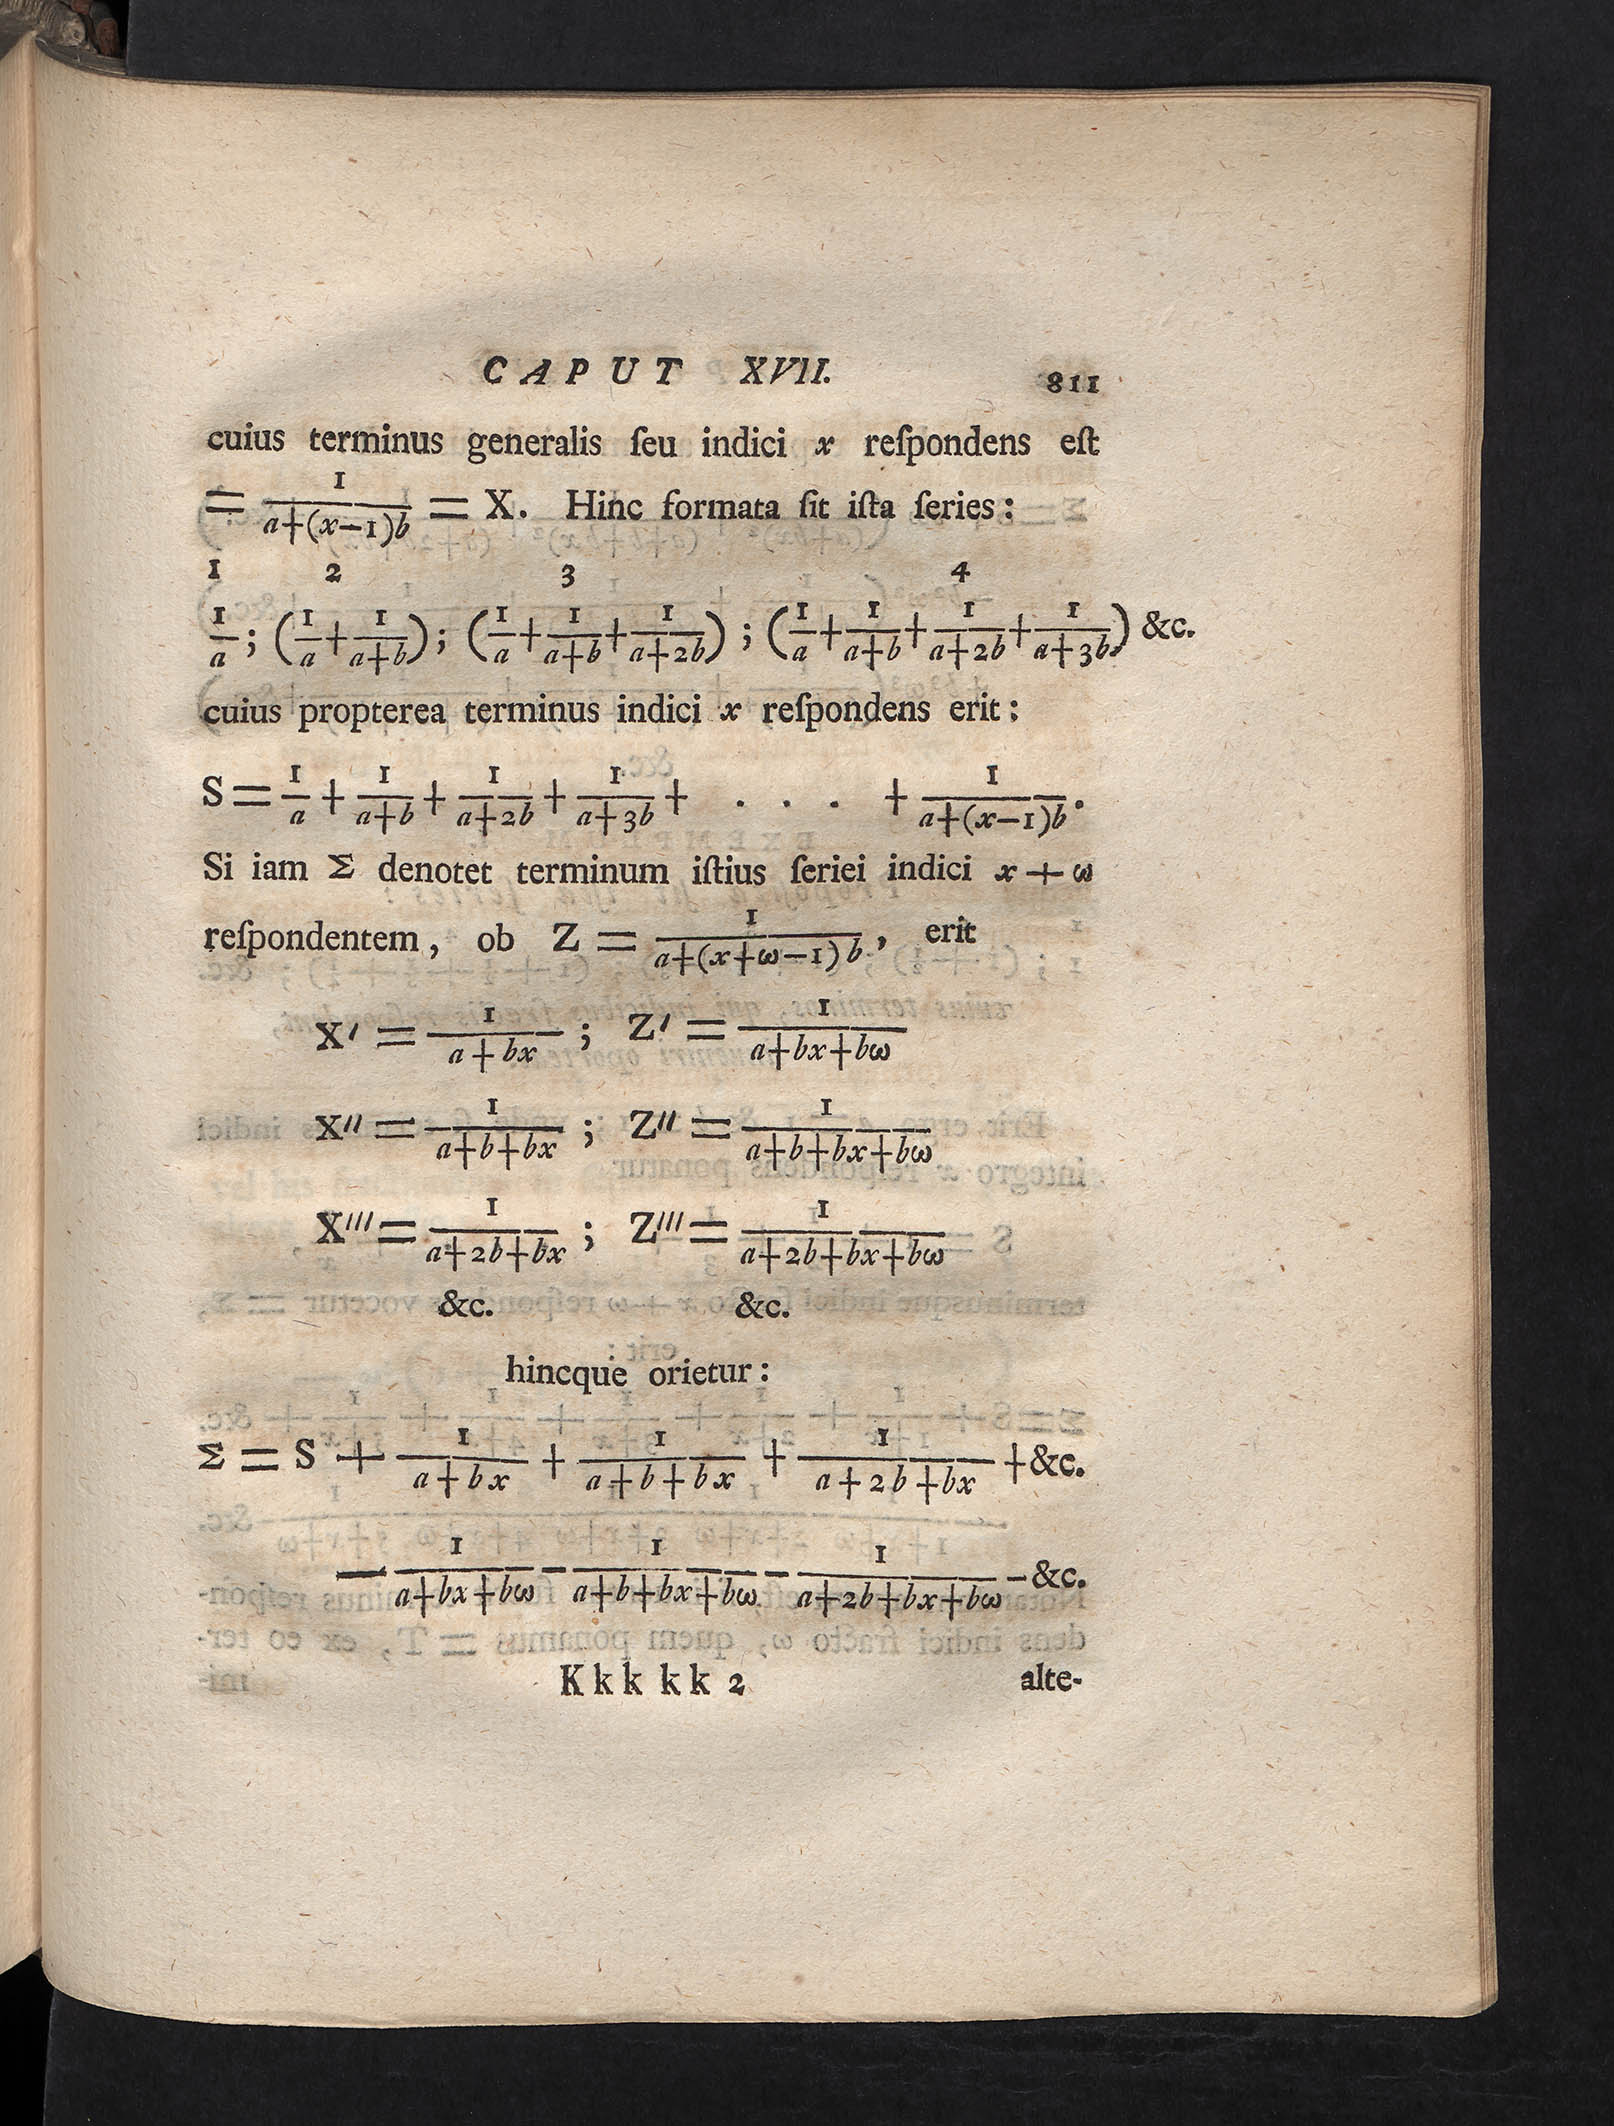 CAPUT XVII. 811
cuius terminus generalis ſeu indici x reſpondens eſt
= 1/(a+(x−1)b) = X. Hinc formata ſit iſta ſeries:
1 2 3 4
1/a ; (1/a + 1/(a+b)) ; (1/a + 1/(a+b) + 1/(a+2b)) ; (1/a + 1/(a+b) + 1/(a+2b) + 1/(a+3b)) &c.
cuius propterea terminus indici x reſpondens erit:
S = 1/a + 1/(a+b) + 1/(a+2b) + 1/(a+3b) + . . . + 1/(a+(x−1)b).
Si iam Σ denotet terminum iſtius ſeriei indici x + ω
reſpondentem, ob Z = 1/(a+(x+ω−1)b), erit
X′ = 1/(a+bx) ; Z′ = 1/(a+bx+bω)
X″ = 1/(a+b+bx) ; Z″ = 1/(a+b+bx+bω)
X‴ = 1/(a+2b+bx) ; Z‴ = 1/(a+2b+bx+bω)
&c. &c.
hincque orietur:
Σ = S + 1/(a+bx) + 1/(a+b+bx) + 1/(a+2b+bx) + &c.
− 1/(a+bx+bω) − 1/(a+b+bx+bω) − 1/(a+2b+bx+bω) − &c.
Kkk kk 2 alte-